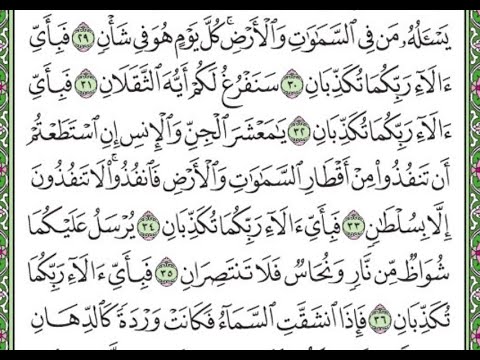 يَسْـَٔلُهُۥ مَن فِى ٱلسَّمَـٰوَٰتِ وَٱلْأَرْضِ ۚ كُلَّ يَوْمٍ هُوَ فِى شَأْنٍ ٢٩ فَبِأَىِّ
ءَالَآءِ رَبِّكُمَا تُكَذِّبَانِ ٣٠ سَنَفْرُغُ لَكُمْ أَيُّهَ ٱلثَّقَلَانِ ٣١ فَبِأَىِّ
ءَالَآءِ رَبِّكُمَا تُكَذِّبَانِ ٣٢ يَـٰمَعْشَرَ ٱلْجِنِّ وَٱلْإِنسِ إِنِ ٱسْتَطَعْتُمْ
أَن تَنفُذُوا۟ مِنْ أَقْطَارِ ٱلسَّمَـٰوَٰتِ وَٱلْأَرْضِ فَٱنفُذُوا۟ ۚ لَا تَنفُذُونَ
إِلَّا بِسُلْطَـٰنٍ ٣٣ فَبِأَىِّ ءَالَآءِ رَبِّكُمَا تُكَذِّبَانِ ٣٤ يُرْسَلُ عَلَيْكُمَا
شُوَاظٌ مِّن نَّارٍ وَنُحَاسٌ فَلَا تَنتَصِرَانِ ٣٥ فَبِأَىِّ ءَالَآءِ رَبِّكُمَا
تُكَذِّبَانِ ٣٦ فَإِذَا ٱنشَقَّتِ ٱلسَّمَآءُ فَكَانَتْ وَرْدَةً كَٱلدِّهَانِ